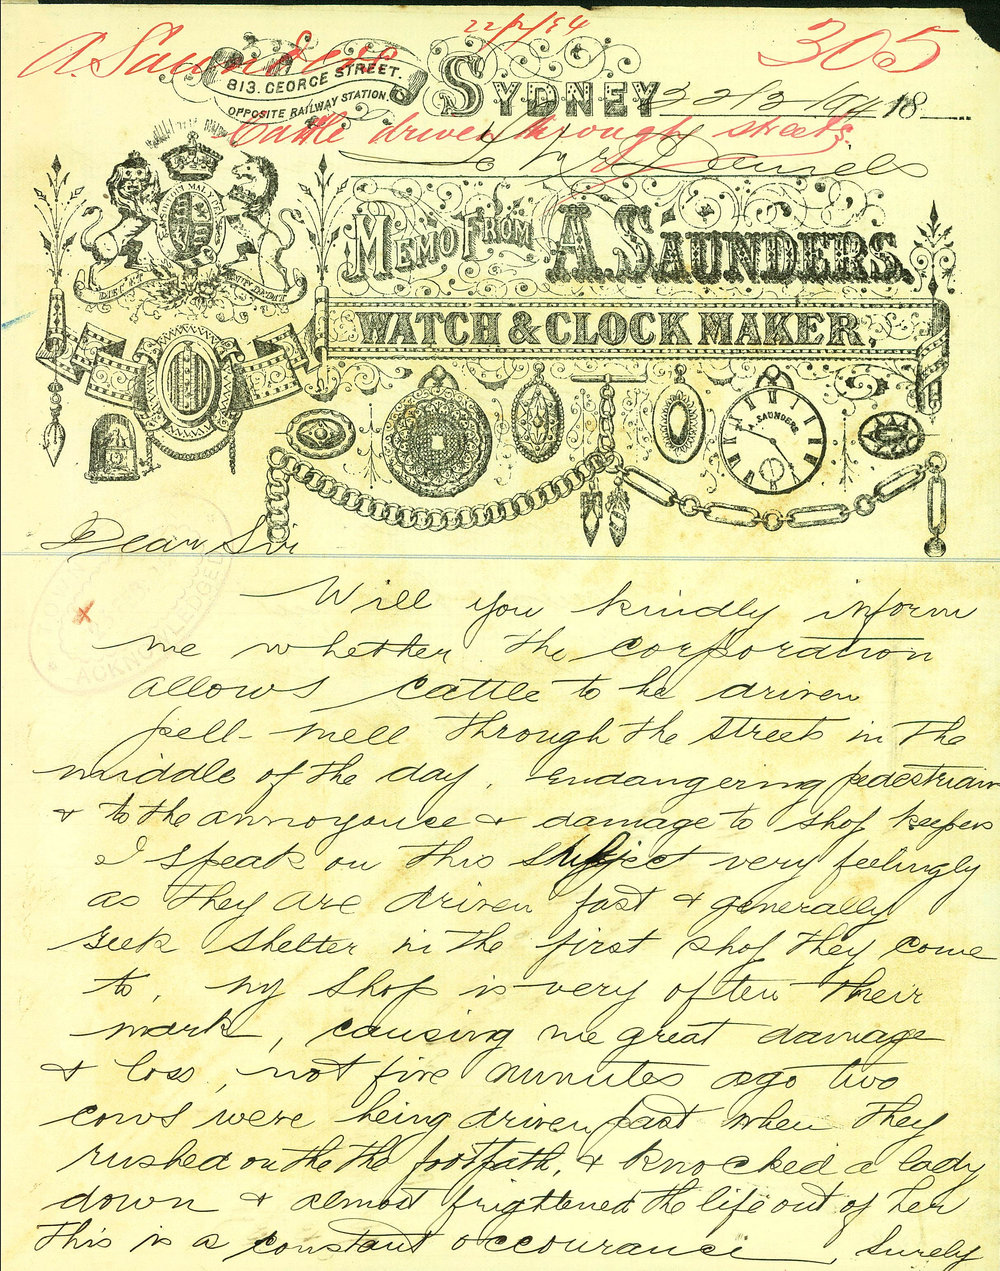 A. Saunders 22/2/94 305
813. GEORGE STREET.
OPPOSITE RAILWAY STATION.
SYDNEY 22/2/1894 18
Cattle driven through streets.
To Mr Daniels
MEMO FROM A. SAUNDERS.
WATCH & CLOCK MAKER,
A. SAUNDERS.
Dear Sir
TOWN
ACKNOWLEDGED
x Will you kindly inform
me whether the corporation
allows cattle to be driven
pell-mell through the streets in the
middle of the day, endangering pedestrians
& to the annoyance & damage to shop keepers
I speak on this subject very feelingly
as they are driven fast & generally
seek shelter in the first shop they come
to, my shop is very often their
mark, causing me great damage
& loss, not five minutes ago two
cows were being driven past when they
rushed on the the footpath, & knocked a lady
down & almost frightened the life out of her
This is a constant occourance, surely